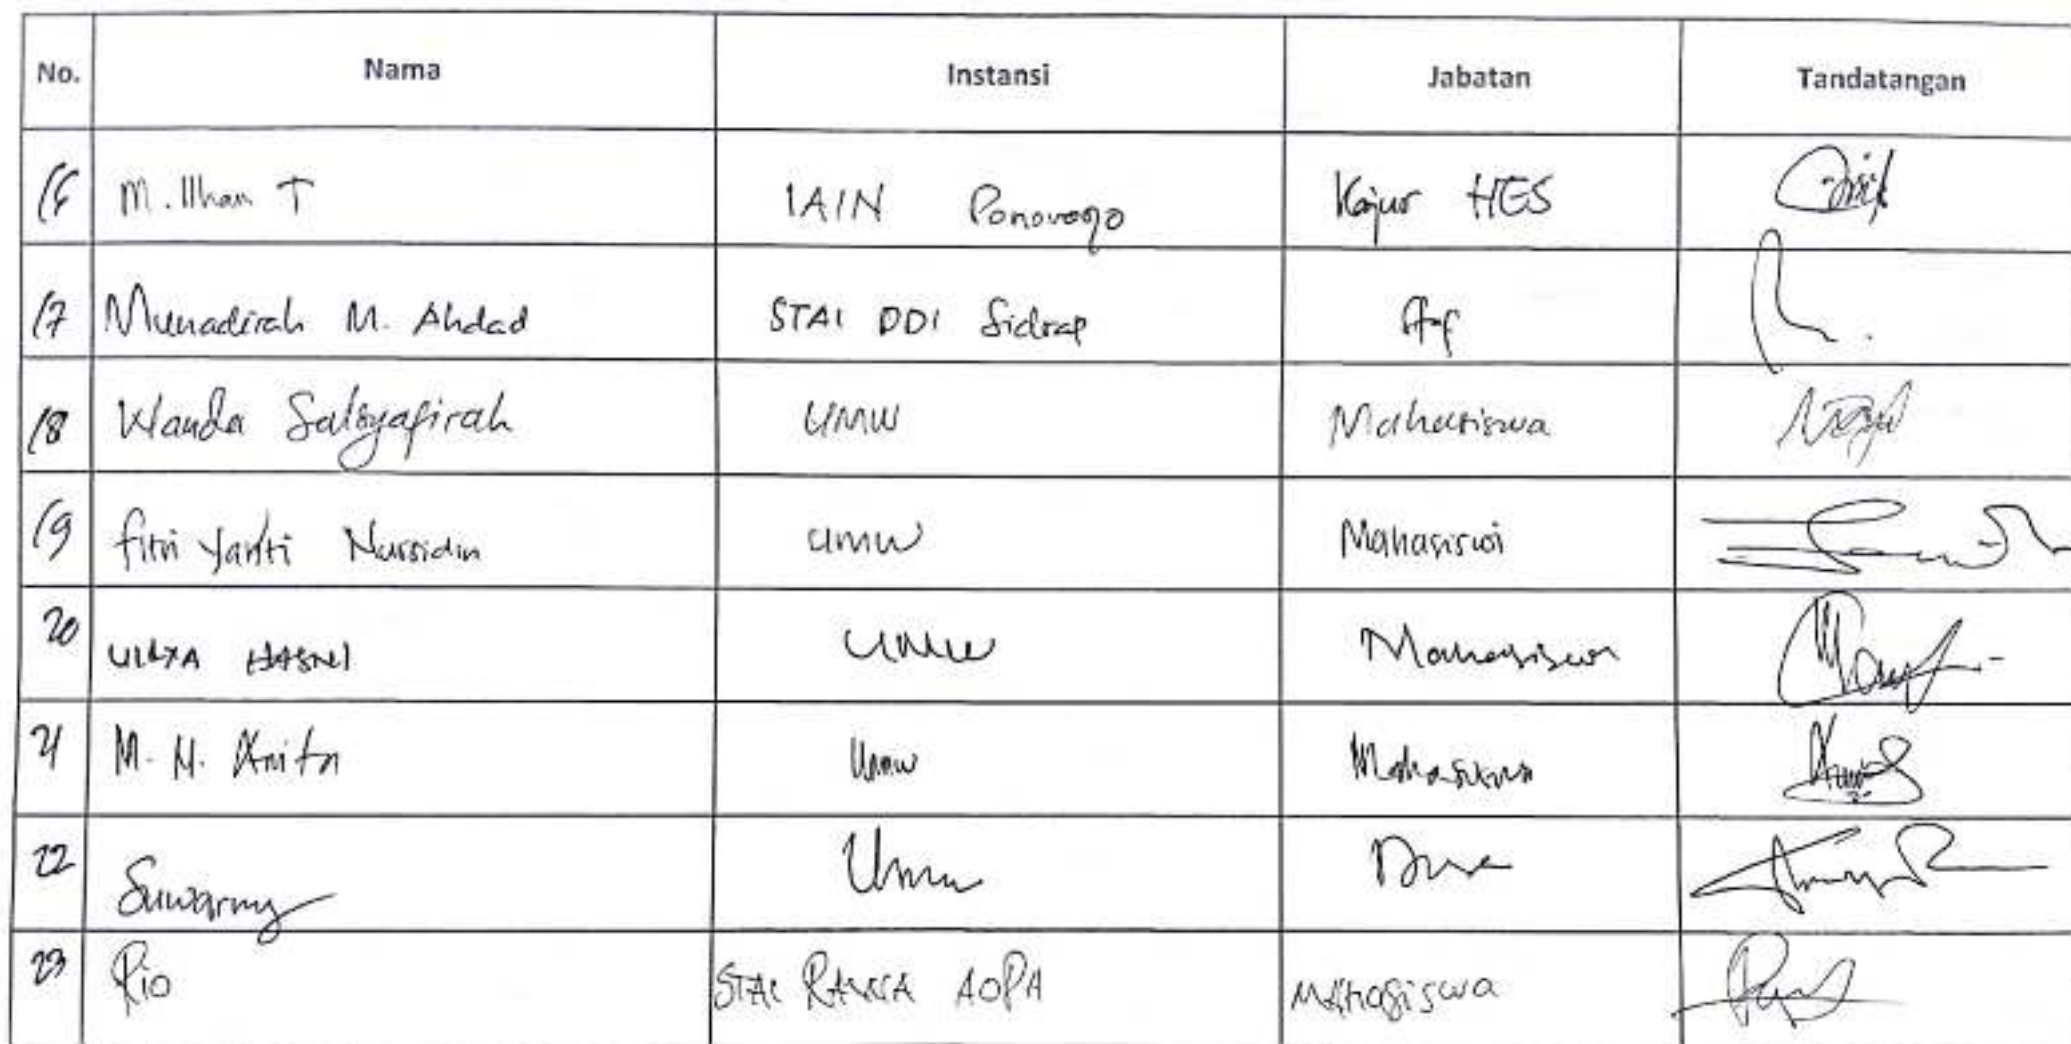 No. Nama Instansi Jabatan Tandatangan
16 M. Ilham T IAIN Ponorogo Kajur HES
17 Munadirah M. Ahdad STAI DDI Sidrap Staf
18 Wanda Salsyafirah UMW Mahasiswa
19 Fitri Yanti Nursidin UMW Mahasiswi
20 HASNI UMW Mahasiswa
21 M. H. Anita UMW Mahasiswa
22 Suwarny UMW
23 Rio STAI RAWA AOPA MAHASISWA